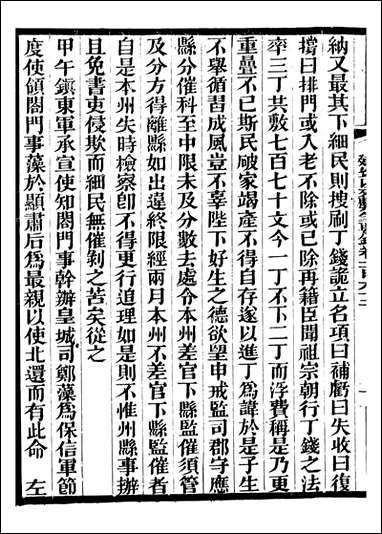 納又最其下細民則搜刷丁錢詭立名項曰補虧曰失收曰復
攢曰排門或入老不除或已除再籍臣聞祖宗朝行丁錢之法
率三丁共敷七百七十文今一丁不下二丁而浮費稱是乃更
重疊不已斯民破家竭產不得自存遂以進丁爲諱於是子生
不舉循習成風豈不辜陛下好生之德欲望申戒監司郡守應
縣分催科至中限未及分數去處令本州差官下縣監催須管
及分方得離縣如出違終限經兩月本州不差官下縣監催者
自是本州失時檢察卽不得更行追理如是則不惟州縣事辦
且免書吏侵欺而細民無催剝之苦矣從之
甲午鎭東軍承宣使知閤門事幹辦皇城司鄭藻爲保信軍節
度使領閤門事藻於顯肅后爲最親以使北還而有此命 左